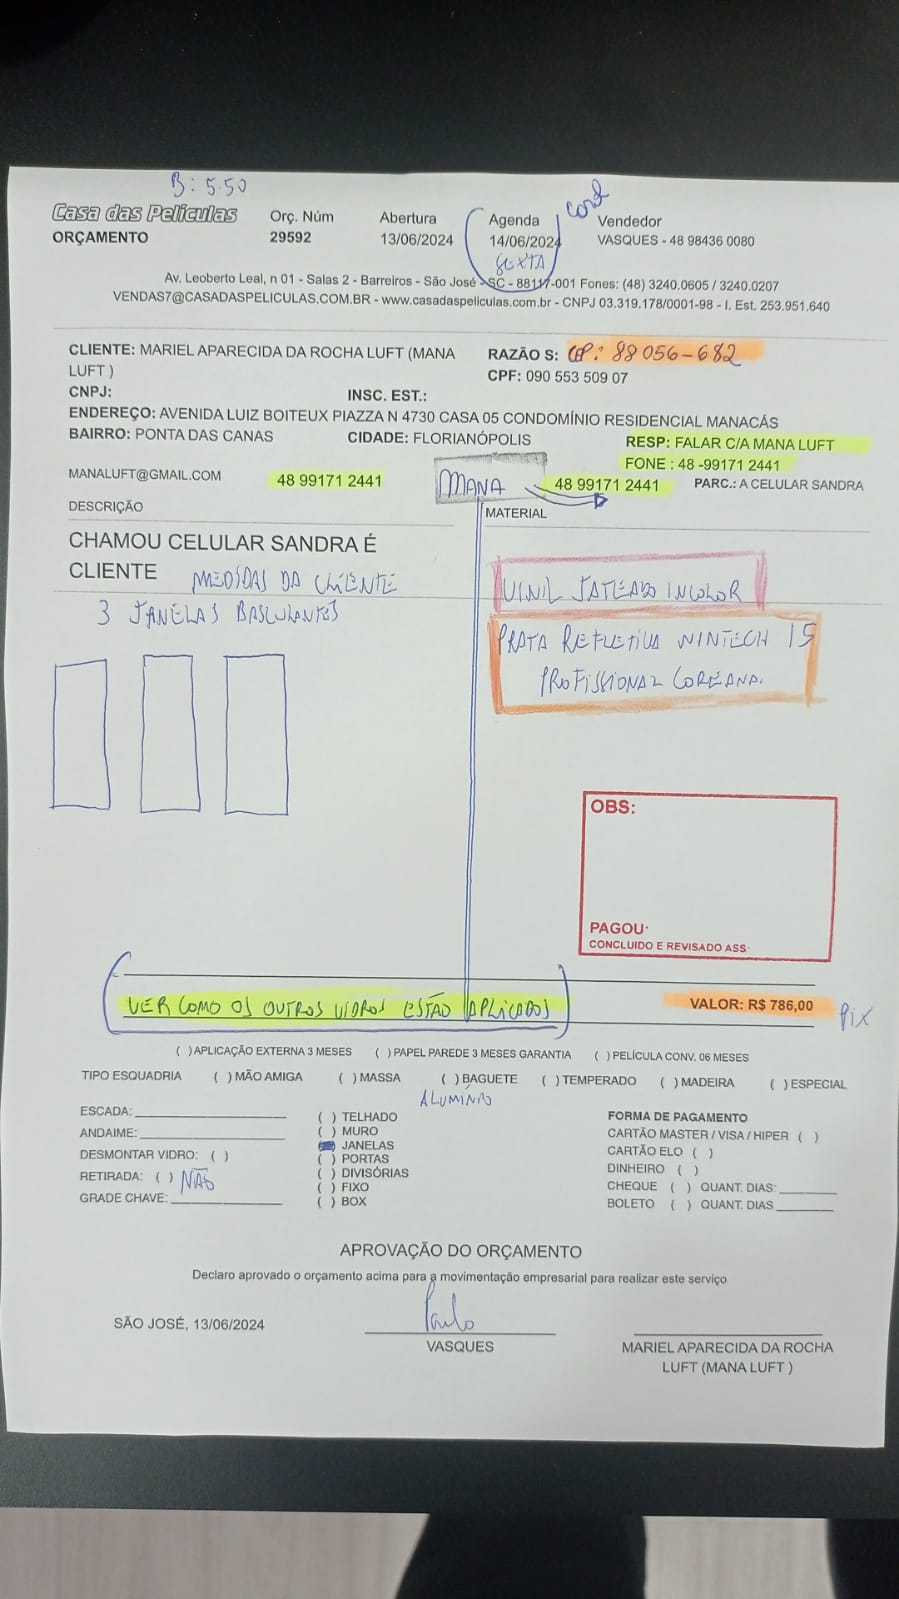 B: 5.50
Casa das Películas
ORÇAMENTO
Orç. Núm
29592
Abertura
13/06/2024
Agenda
14/06/2024
SEXTA
Vendedor
VASQUES - 48 98436 0080
Av. Leoberto Leal, n 01 - Salas 2 - Barreiros - São José - SC - 88117-001 Fones: (48) 3240.0605 / 3240.0207
VENDAS7@CASADASPELICULAS.COM.BR - www.casadaspeliculas.com.br - CNPJ 03.319.178/0001-98 - I. Est. 253.951.640
CLIENTE: MARIEL APARECIDA DA ROCHA LUFT (MANA
LUFT )
RAZÃO S: CEP: 88056-682
CPF: 090 553 509 07
CNPJ:
INSC. EST.:
ENDEREÇO: AVENIDA LUIZ BOITEUX PIAZZA N 4730 CASA 05 CONDOMÍNIO RESIDENCIAL MANACÁS
BAIRRO: PONTA DAS CANAS
CIDADE: FLORIANÓPOLIS
RESP: FALAR C/A MANA LUFT
FONE : 48 -99171 2441
MANALUFT@GMAIL.COM
48 99171 2441
MANA
48 99171 2441
PARC.: A CELULAR SANDRA
DESCRIÇÃO
MATERIAL
CHAMOU CELULAR SANDRA É
CLIENTE MEDIDAS DA CLIENTE
3 JANELAS BASCULANTES
VINIL JATEADO INCOLOR
PRATA REFLETIVA WINTECH 15
PROFISSIONAL COREANA.
OBS:
PAGOU:
CONCLUIDO E REVISADO ASS:
VER COMO OS OUTROS VIDROS ESTÃO APLICADOS
VALOR: R$ 786,00
PIX
( ) APLICAÇÃO EXTERNA 3 MESES ( ) PAPEL PAREDE 3 MESES GARANTIA ( ) PELÍCULA CONV. 06 MESES
TIPO ESQUADRIA ( ) MÃO AMIGA ( ) MASSA ( ) BAGUETE ( ) TEMPERADO ( ) MADEIRA ( ) ESPECIAL
ALUMÍNIO
ESCADA:
ANDAIME:
DESMONTAR VIDRO: ( )
RETIRADA: ( ) NÃO
GRADE CHAVE:
( ) TELHADO
( ) MURO
JANELAS
( ) PORTAS
( ) DIVISÓRIAS
( ) FIXO
( ) BOX
FORMA DE PAGAMENTO
CARTÃO MASTER / VISA / HIPER ( )
CARTÃO ELO ( )
DINHEIRO ( )
CHEQUE ( ) QUANT. DIAS:
BOLETO ( ) QUANT. DIAS
APROVAÇÃO DO ORÇAMENTO
Declaro aprovado o orçamento acima para a movimentação empresarial para realizar este serviço
Paulo
SÃO JOSÉ, 13/06/2024
VASQUES
MARIEL APARECIDA DA ROCHA
LUFT (MANA LUFT )